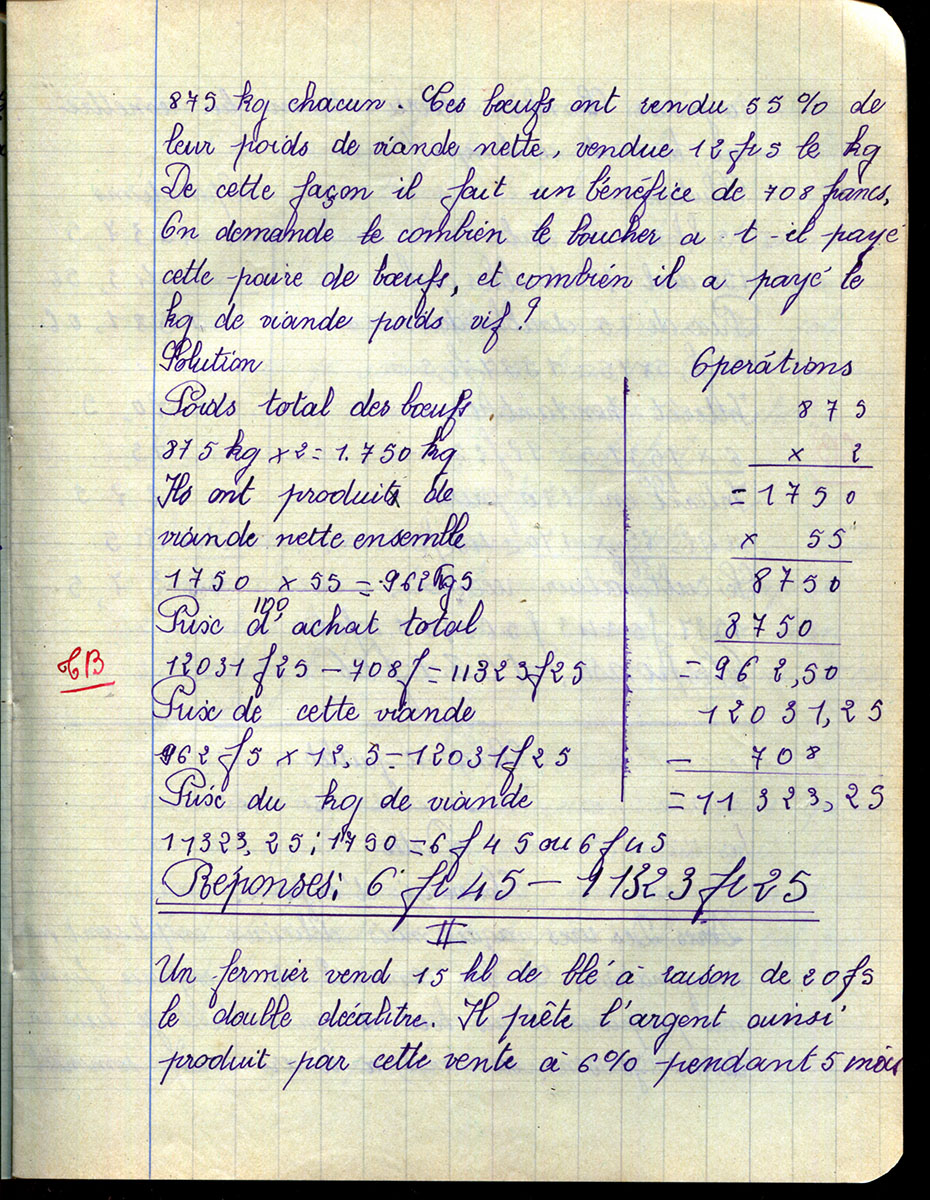 875 kg chacun. Ces bœufs ont rendu 55% de
leur poids de viande nette, vendue 12 f 5 le kg
De cette façon il fait un bénéfice de 708 francs,
On demande le combien le boucher a-t-il payé
cette paire de bœufs, et combien il a payé le
kg de viande poids vif.?
Solution
Opérations
Poids total des bœufs
875 kg x 2 = 1.750 kg
Ils ont produit de
viande nette ensemble
1750 x 55 = 962 kg 5
100
Prix d'achat total
TB
12031 f 25 - 708 f = 11323 f 25
Prix de cette viande
962 f 5 x 12,5 = 12031 f 25
Prix du kg de viande
11323,25 : 1750 = 6 f 45 ou 6 f 45
875
x 2
= 1750
x 55
8750
8750
= 962,50
12031,25
- 708
= 11323,25
Réponses: 6 fr 45 - 11323 fr 25
II
Un fermier vend 15 hl de blé à raison de 20 fs
le double décalitre. Il prête l'argent ainsi
produit par cette vente à 6% pendant 5 mois